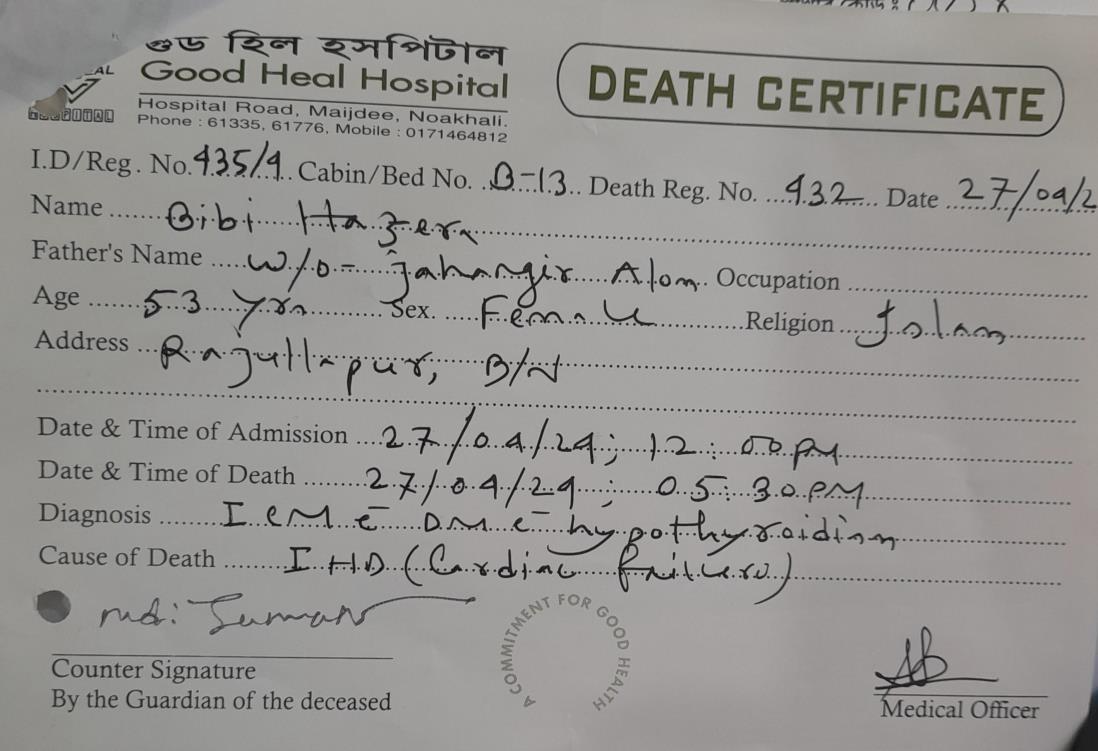 গুড হিল হসপিটাল
Good Heal Hospital
Hospital Road, Maijdee, Noakhali.
Phone : 61335, 61776, Mobile : 0171464812
DEATH CERTIFICATE
I.D/Reg. No. 435/4 Cabin/Bed No. B-13 Death Reg. No. 432 Date 27/04/2
Name Bibi Hazera
Father's Name W/O- Jahangir Alom Occupation
Age 53 Yrs Sex. Female Religion Islam
Address Rajullapur, B/N
Date & Time of Admission 27/04/24; 12:00 PM
Date & Time of Death 27/04/24; 05:30 PM
Diagnosis DM hypothyroidism
Cause of Death IHD (Cardiac failure)
md: Suman
Counter Signature
By the Guardian of the deceased
A COMMITMENT FOR GOOD HEALTH
Medical Officer